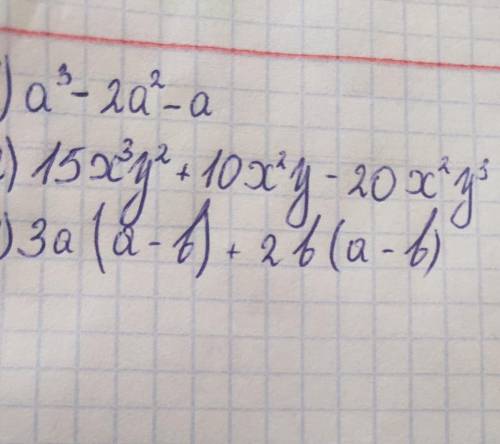 ) a³ - 2a² - a
) 15x³y² + 10x²y - 20x²y³
) 3a (a - b) + 2b (a - b)